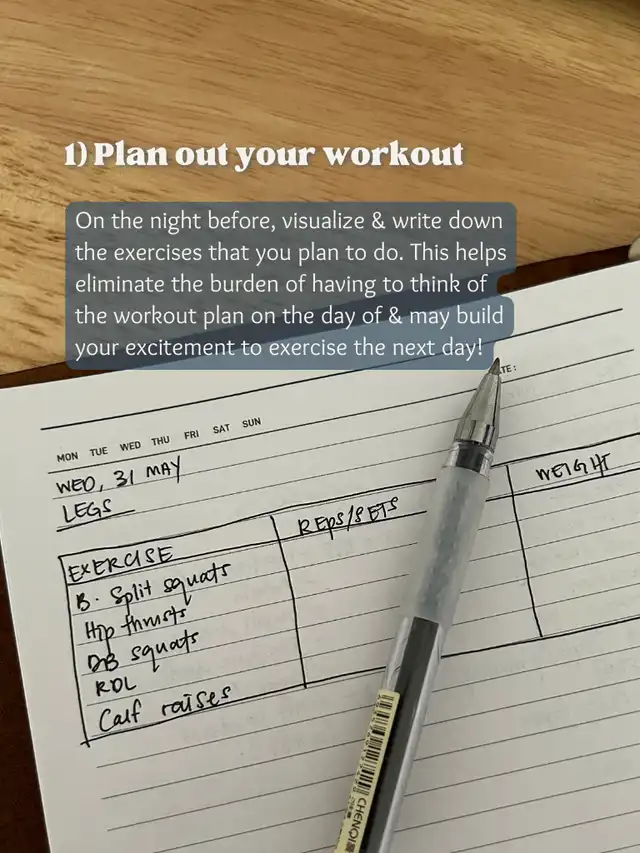 1) Plan out your workout
On the night before, visualize & write down
the exercises that you plan to do. This helps
eliminate the burden of having to think of
the workout plan on the day of & may build
your excitement to exercise the next day!
MON TUE WED THU FRI SAT SUN
WED, 31 MAY
LEGS
EXERCISE REPS/SETS WEIGHT
B. Split squats
Hip thrusts
DB squats
RDL
Calf raises
CHENQI